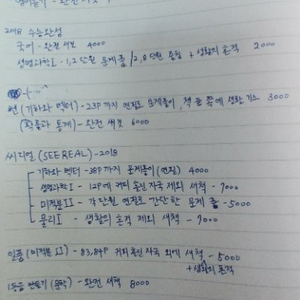 2018 수능완성
국어 - 완전 새것 4000
생명과학I - 1,2단원 문제풀 /2,8단원 + 생활의 흔적 2000
쎈 (기하와 벡터) - 23P까지 연필로 문제풀이, 책 끝 쪽에 생활기스 3000
(확률과 통계) - 완전새것 6000
씨리얼 (SEE REAL) - 2018
기하와 벡터 - 28P까지 문제풀이 (연필) 4000
생명과학I - 12P에 커피 흘린 자국 제외 새책 - 7000
미적분II - 각 단원 연필로 간단한 문제 풂 - 5000
물리I - 생활의 흔적 제외 새책 - 7000
일품 (미적분II) - 83,84P 커피흘린 자국 외에 새책 - 5000
+ 생활의 흔적
완전 새책 8000